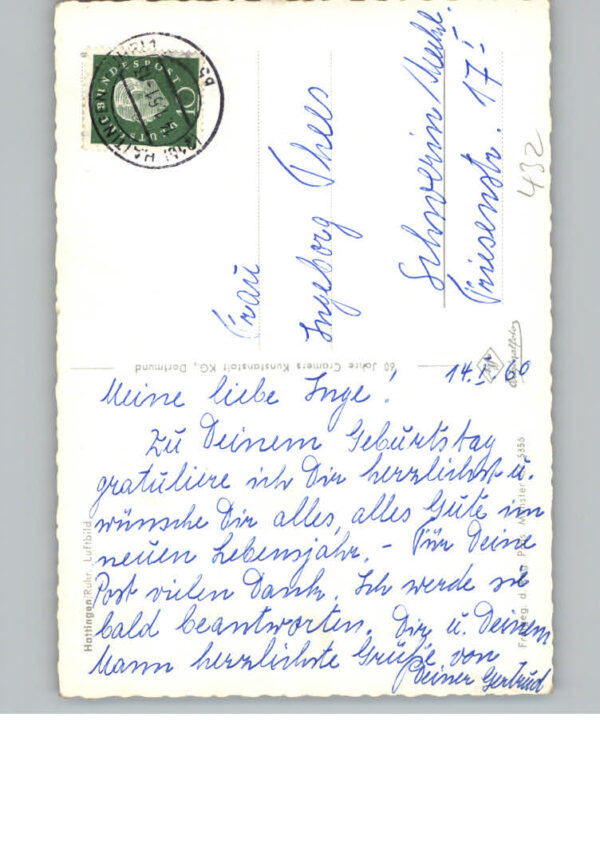 Meine liebe Inge!
14. I. 60
Zu Deinem Geburtstag
gratuliere ich Dir herzlichst u.
wünsche Dir alles, alles Gute im
neuen Lebensjahr. – Für Deine
Post vielen Dank. Ich werde sie
bald beantworten. Dir u. Deinem
Mann herzlichste Grüße von
Deiner Gertrud
Frau
Ingeborg Thees
Schwerin Meckl.
Friesenstr. 17 I
432
60 Jahre Cramers Kunstanstalt KG., Dortmund
Hattingen/Ruhr, Luftbild
5353
DEUTSCHE BUNDESPOST
10
HATTINGEN